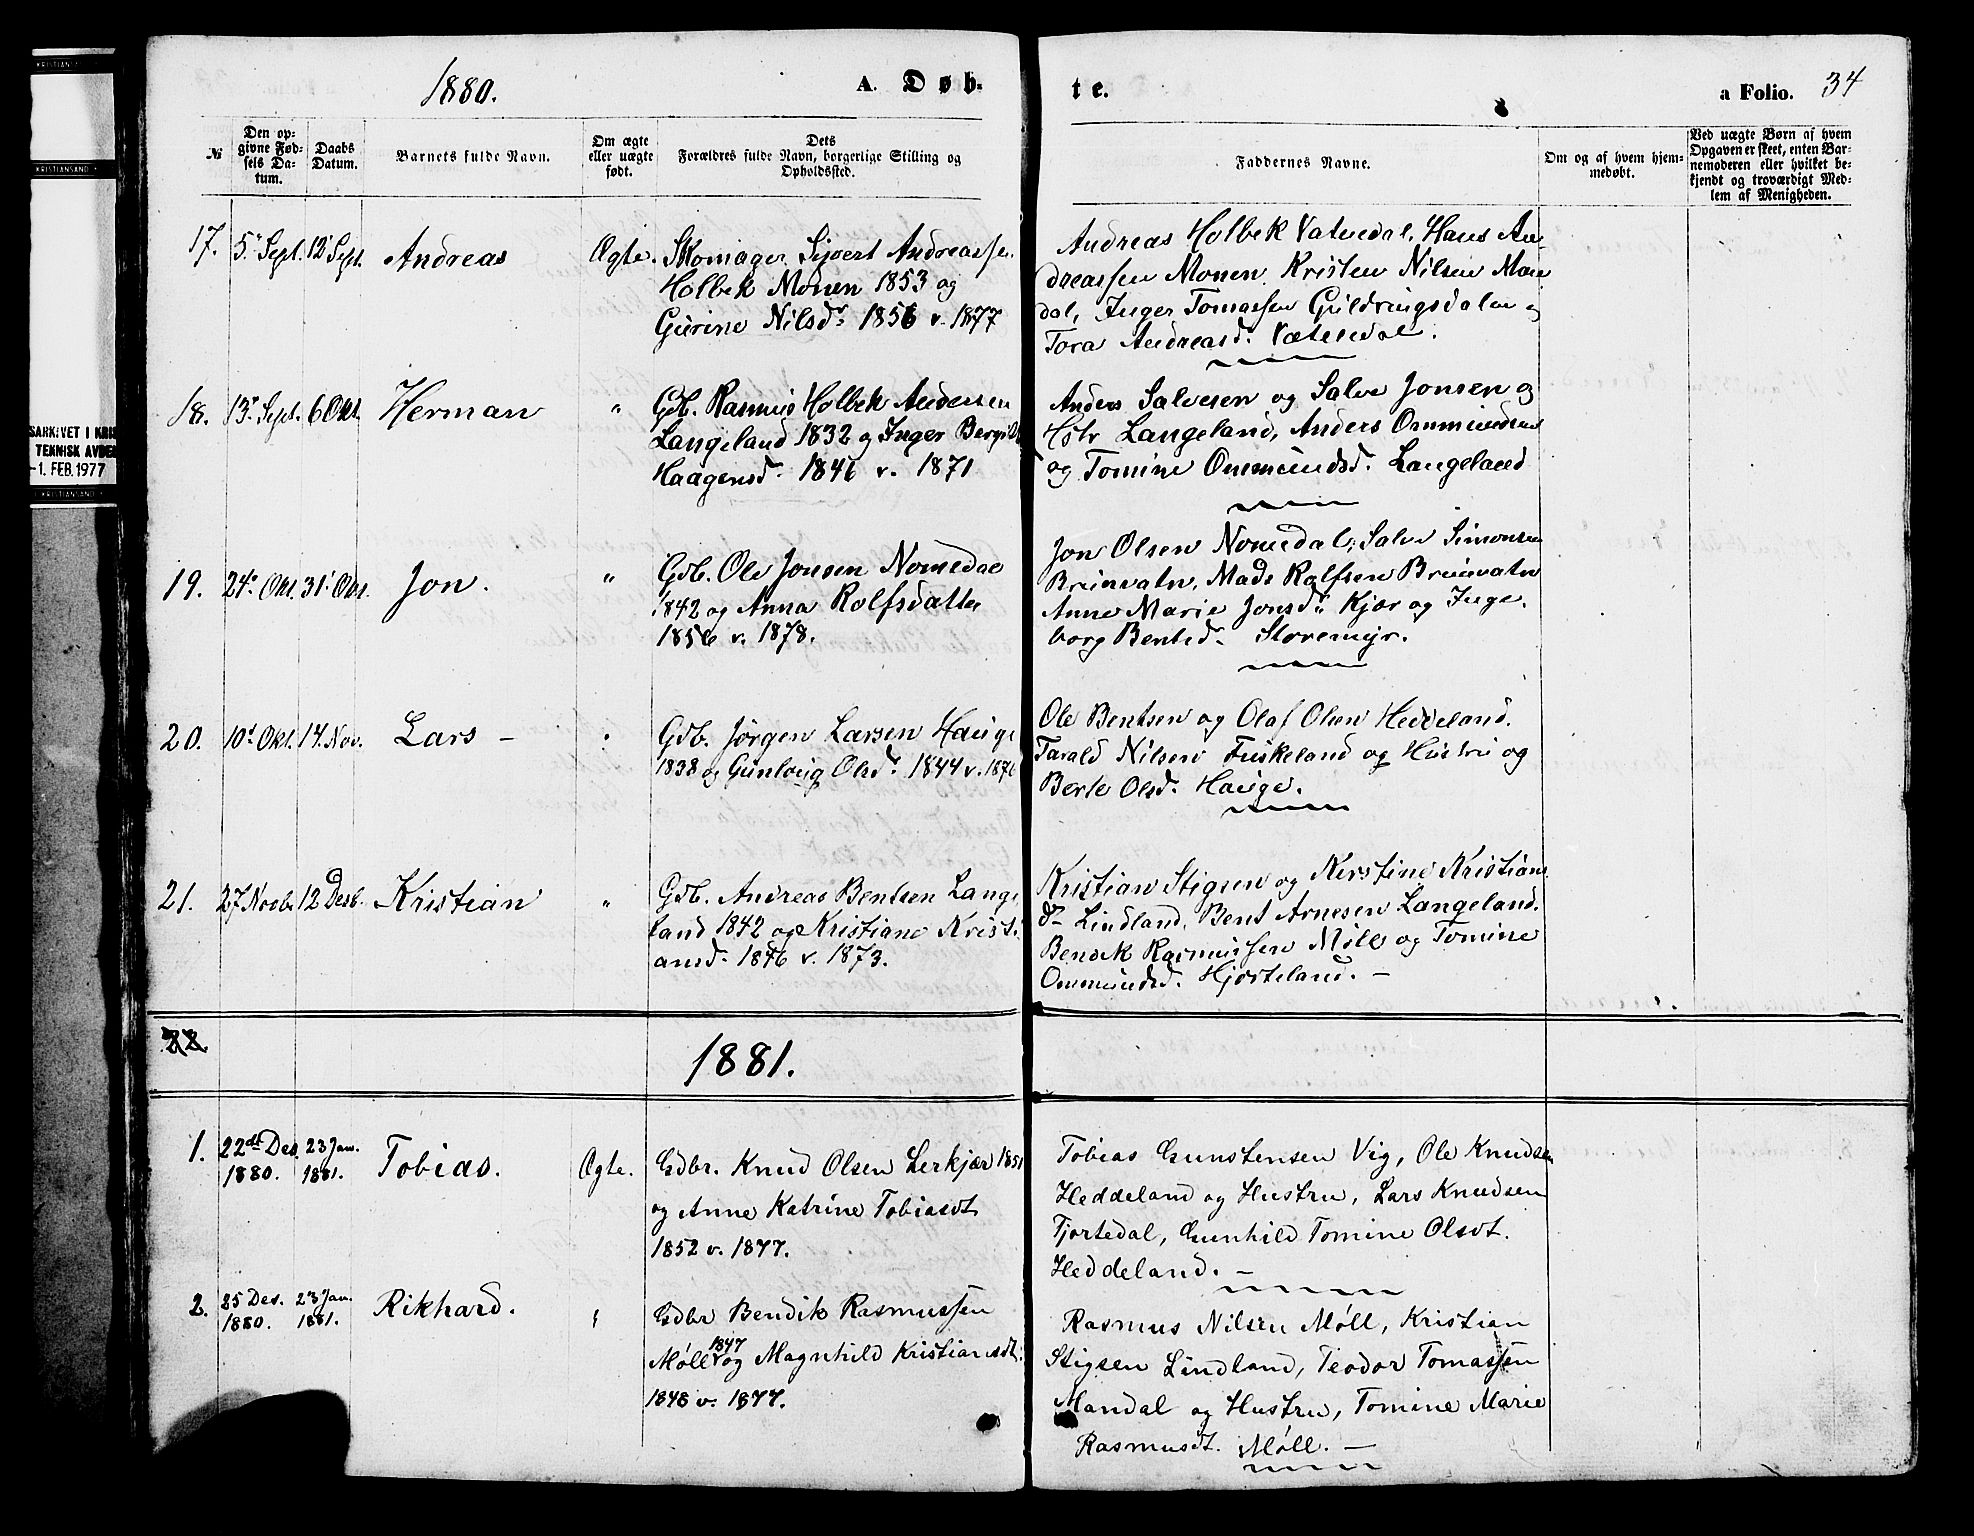 1880.
A. Døb-
te.
a Folio. 34
№
Den op-
givne Fød-
sels Da-
tum.
Daabs
Datum.
Barnets fulde Navn.
Om ægte
eller uægte
født.
Dets
Forældres fulde Navn, borgerlige Stilling og
Opholdssted.
Faddernes Navne.
Om og af hvem hjem-
medøbt.
Ved uægte Børn af hvem
Opgaven er skeet, enten Bar-
nemoderen eller hvilket be-
kjendt og troværdigt Med-
lem af Menigheden.
17. 5. Sept. 12 Sept. Andreas Ægte. Skomager Sivert Andreassen
Holbek Monen 1853 og
Gurine Nilsd. 1856 v. 1877
Andreas Holbek Vatnedal, Hans An-
dreassen Monen. Kristen Nilsen Man
dal, Inger Tomassen Guldringsdalen og
Tora Andreasd. Vatnedal.
18. 13 Sept. 6 Okt. Herman " Gdb. Rasmus Holbek Andersen
Langeland 1832 og Inger Bergitte
Haagensd. 1846 v. 1871
Anders Salvesen og Salve Jonsen og
Hstr Langeland, Anders Ommundsen
og Tomine Ommundsd. Langeland
19. 24. Okt. 31. Okt. Jon. " Gdb. Ole Jonsen Nomedal
1842 og Anna Rolfsdatter
1856 v. 1878.
Jon Olsen Nomedal, Salve Simonsen
Brunvatn, Mads Rolfsen Brunvatn
Anne Marie Jonsd. Kjær og Inge-
borg Bentsd. Storemyr.
20. 10 Okt. 14. Nov. Lars – " Gdb. Jörgen Larsen Hauge
1838 og Gunlaug Olsd. 1844 v. 1876
Ole Bentsen og Olaf Olsen Heddeland.
Tarald Nilsen Fuskeland og Hustru og
Berte Olsd. Hauge.
21. 27 Novb. 12 Desb. Kristian " Gdb. Andreas Bentsen Lange
land 1842 og Kristiane Kristi
ansd. 1846 v. 1873.
Kristian Stigsen og Kirstine Kristians
d. Lindland, Bent Arnesen Langeland.
Bendik Rasmussen Møll og Tomine
Ommundsd. Hjorteland. –
22
1881.
1. 22de Des. 1880. 23 Jan. 1881. Tobias. Ægte. Gdbr. Knud Olsen Lerkjær 1851
og Anne Katrine Tobiasdt.
1852 v. 1877.
Tobias Gunstensen Vig, Ole Knudsen
Heddeland og Hustru, Lars Knudsen
Fjortedal, Gunhild Tomine Olsdt.
Heddeland. –
2. 25 Des. 1880. 23 Jan. 1881. Rikhard. " Gdbr Bendik Rasmussen
Møll 1847 og Magnhild Kristiansdt.
1848 v. 1877.
Rasmus Nilsen Møll, Kristian
Stigsen Lindland, Teodor Tomassen
Mandal og Hustru, Tomine Marie
Rasmusdt. Møll. –
KRISTIANSAND
SARKIVET I KRIS
TEKNISK AVDE
-1. FEB. 1977
KRISTIANSAND